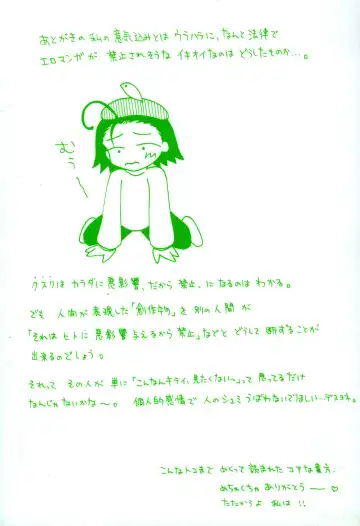 あとがきの私の意気込みとは ウラハラに、なんと法律で
エロマンガが 禁止されそうな イキオイなのは どうしたものか…。
むぅ〜
クスリは カラダに悪影響、だから禁止、になるのは わかる。
でも 人間が表現した「創作物」を 別の人間が
「それは ヒトに 悪影響 与えるから 禁止」などと どうして 断することが
出来るのでしょう。
それって その人が 単に「こんなんキライ、見たくない〜」って 思ってるだけ
なんじゃないかな〜。 個人的感情で 人のシュミ うばわないでほしい…デスヨネ。
こんなトコまで めくって 読まれた コアな貴方、
めちゃくちゃ ありがとう〜♡
たたかうよ 私は!!